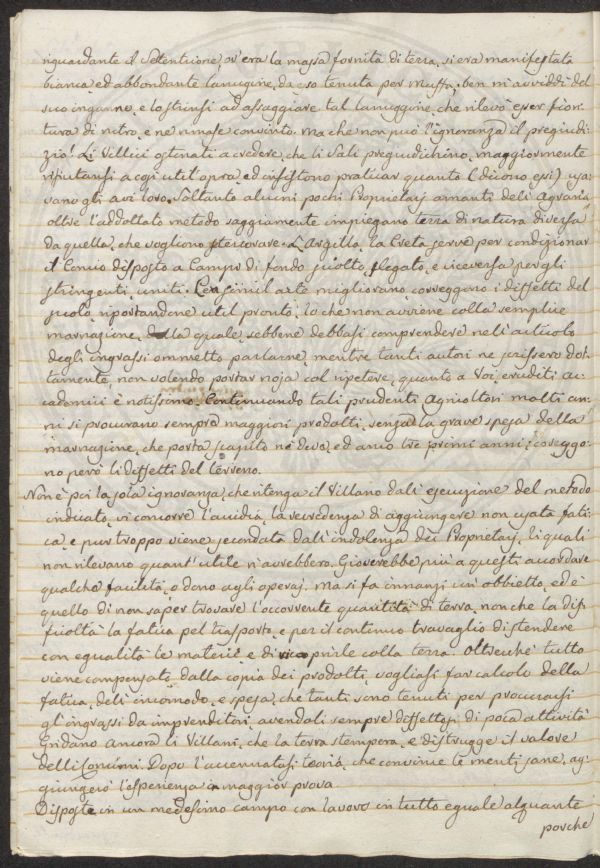 riguardante il Setentrione, ov'era la massa fornita di terra, si era manifestata
bianca, ed abbondante lanugine, da eso tenuta per Muffa; ben m'avviddi del
suo inganno, e lo strinsi ad assaggiare tal lanuggine, che rilevò esser fiori-
tura di nitro, e ne rimase convinto. Ma che non può l'ignoranza il pregiudi-
zio! Li Villici ostenati a credere, che li Sali pregiudichino, maggiormente
rifiutansi a così util opra, ed insistono praticar quanto (dicono essi) usa-
vano gli avi loro. Soltanto alcuni pochi Proprietarj amanti dell'Agraria
oltre l'addottato metodo saggiamente impiegano terra di natura diversa
da quella, che vogliono stercorare. L'Argilla, la Creta serve per condizionar
il Concio disposto a Campi di fondo sciolto, slegato, e viceversa per gli
stringenti, uniti. Con simil arte migliorano, correggono i diffetti del
suolo, riportandone util pronto, lo che non avviene colla semplice
marnazione, della quale, sebbene debbasi comprendere nell'articolo
degli ingrassi ommetto parlarne, mentre tanti autori ne scrissero dot-
tamente, non volendo portar noja col ripetere, quanto a Voi, eruditi Ac-
cademici è notissimo. Continuando tali prudenti Agricoltori molti an-
ni si procurano sempre maggiori prodotti, senza la grave spesa della
marnazione, che porta scapito nè due, ed anco tre primi anni; coreggo-
no però li diffetti del terreno.
Non è poi la sola ignoranza, che ritenga il Villano dall'esecuzione del metodo
indicato, vi concorre l'avidità, la renitenza di aggiungere non usata fati-
ca, e pur troppo viene secondata dall'indolenza dei Proprietarj, li quali
non rilevano quant'utile n'avrebbero. Gioverebbe più a questi accordare
qualche facilità, o dono agli operaj. Ma si fa innanzi un obbietto, ed è
quello di non saper trovare l'occorrente quantità di terra, non che la dif-
ficoltà la fatica pel trasporto, e per il continuo travaglio di stendere
con egualità le materie, e di ricoprirle colla terra. Oltrechè tutto
viene compensato dalla copia dei prodotti, vogliasi far calcolo della
fatica, dell'incomodo, e spesa, che tanti sono tenuti per procurarsi
gl'ingrassi da imprenditori, avendoli sempre diffettosi, di poca attività
Gridano ancora li Villani, che la terra stempera, e distrugge il valore
delli Concimi. Dopo l'accennatasi teoria, che convince le menti sane, ag-
giungerò l'esperienza a maggior prova.
Disposte in un medesimo campo con lavoro in tutto eguale alquante
porche